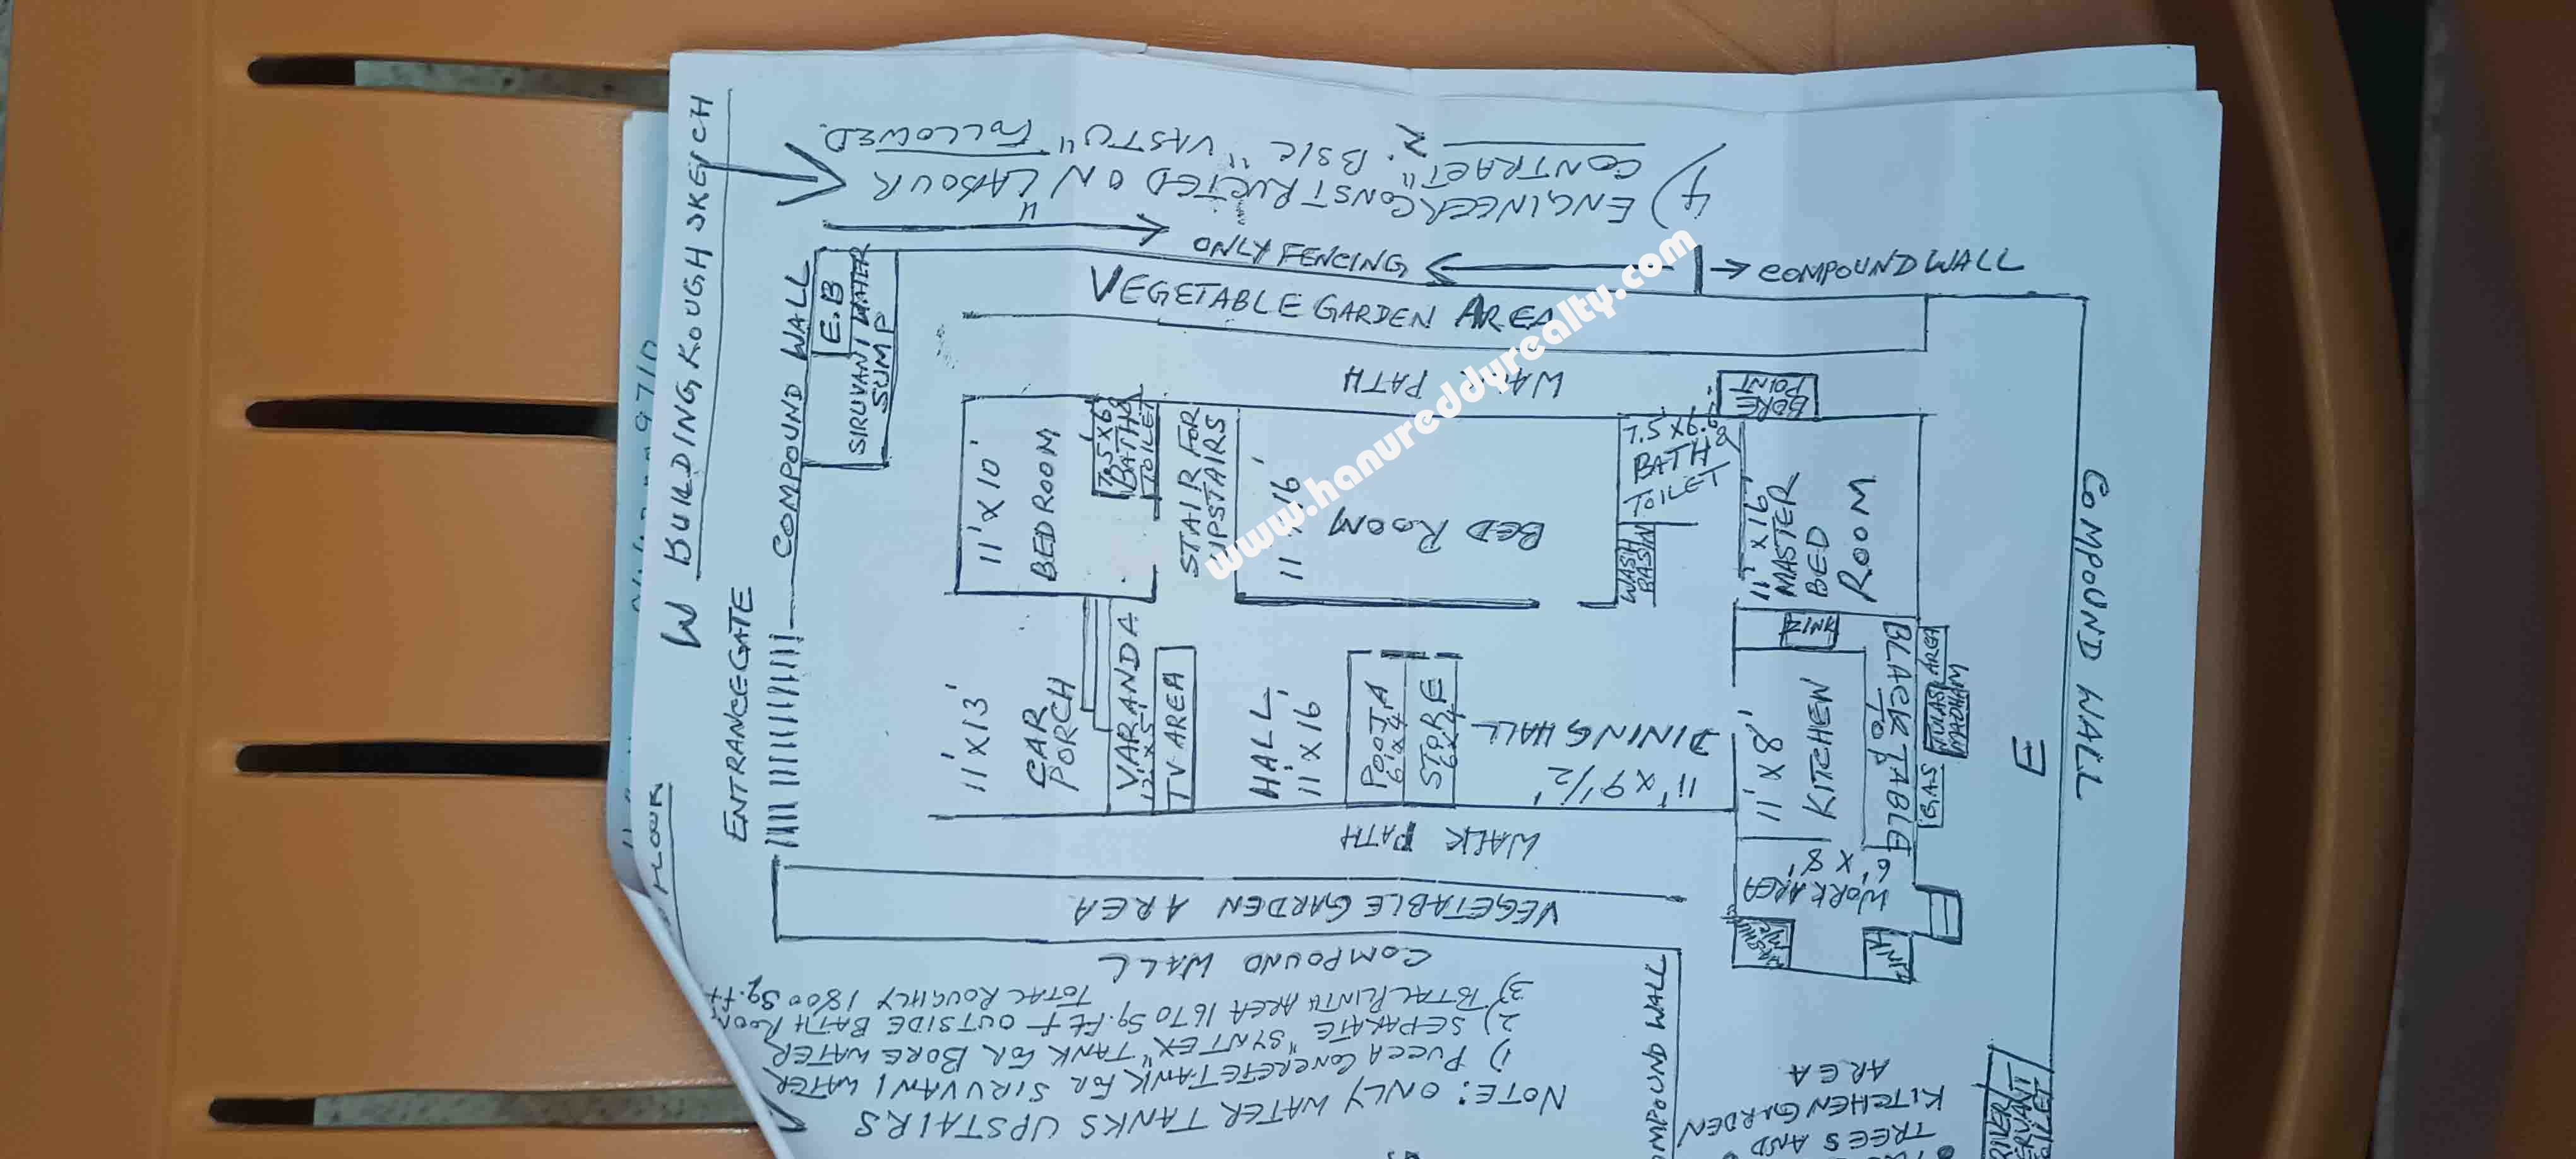 W BUILDING ROUGH SKETCH
4) ENGINEER CONSTRUCTED ON "LABOUR
CONTRACT". BSIC "VASTU" FOLLOWED.
ONLY FENCING
COMPOUND WALL
VEGETABLE GARDEN AREA
WALK PATH
COMPOUND WALL
E.B
SIRUVANI WATER
SUMP
ENTRANCE GATE
11' X 10'
BED ROOM
BATH &
TOILET
STAIR FOR
UPSTAIRS
11' X 16'
BED ROOM
7.5 X 9.9'
BATH &
TOILET
WASH
BASIN
BORE
POINT
11' X 16'
MASTER
BED
ROOM
11' X 13'
CAR
PORCH
VARANDA
12' X 5'
TV AREA
HALL
11' X 16'
POOJA
6' X 4'
STORE
6' X 4'
DINING HALL
11' X 9 1/2'
ZINK
11' X 8'
KITCHEN
BLACK TABLE
TOP
GAS
TULASI AREA
MADHAM
WORK AREA
6' X 8'
ZINK
E
COMPOUND WALL
WALK PATH
VEGETABLE GARDEN AREA
COMPOUND WALL
NOTE: ONLY WATER TANKS UPSTAIRS
1) PUCCA CONCRETE TANK FOR SIRUVANI WATER
2) SEPARATE "SYNTEX" TANK FOR BORE WATER
3) TOTAL PLINTH AREA 1670 Sq. FEET OUTSIDE BATH ROOM
TOTAL ROUGHLY 1800 Sq. Ft
COMPOUND WALL
TREES AND
KITCHEN GARDEN
AREA
www.hanureddyrealty.com